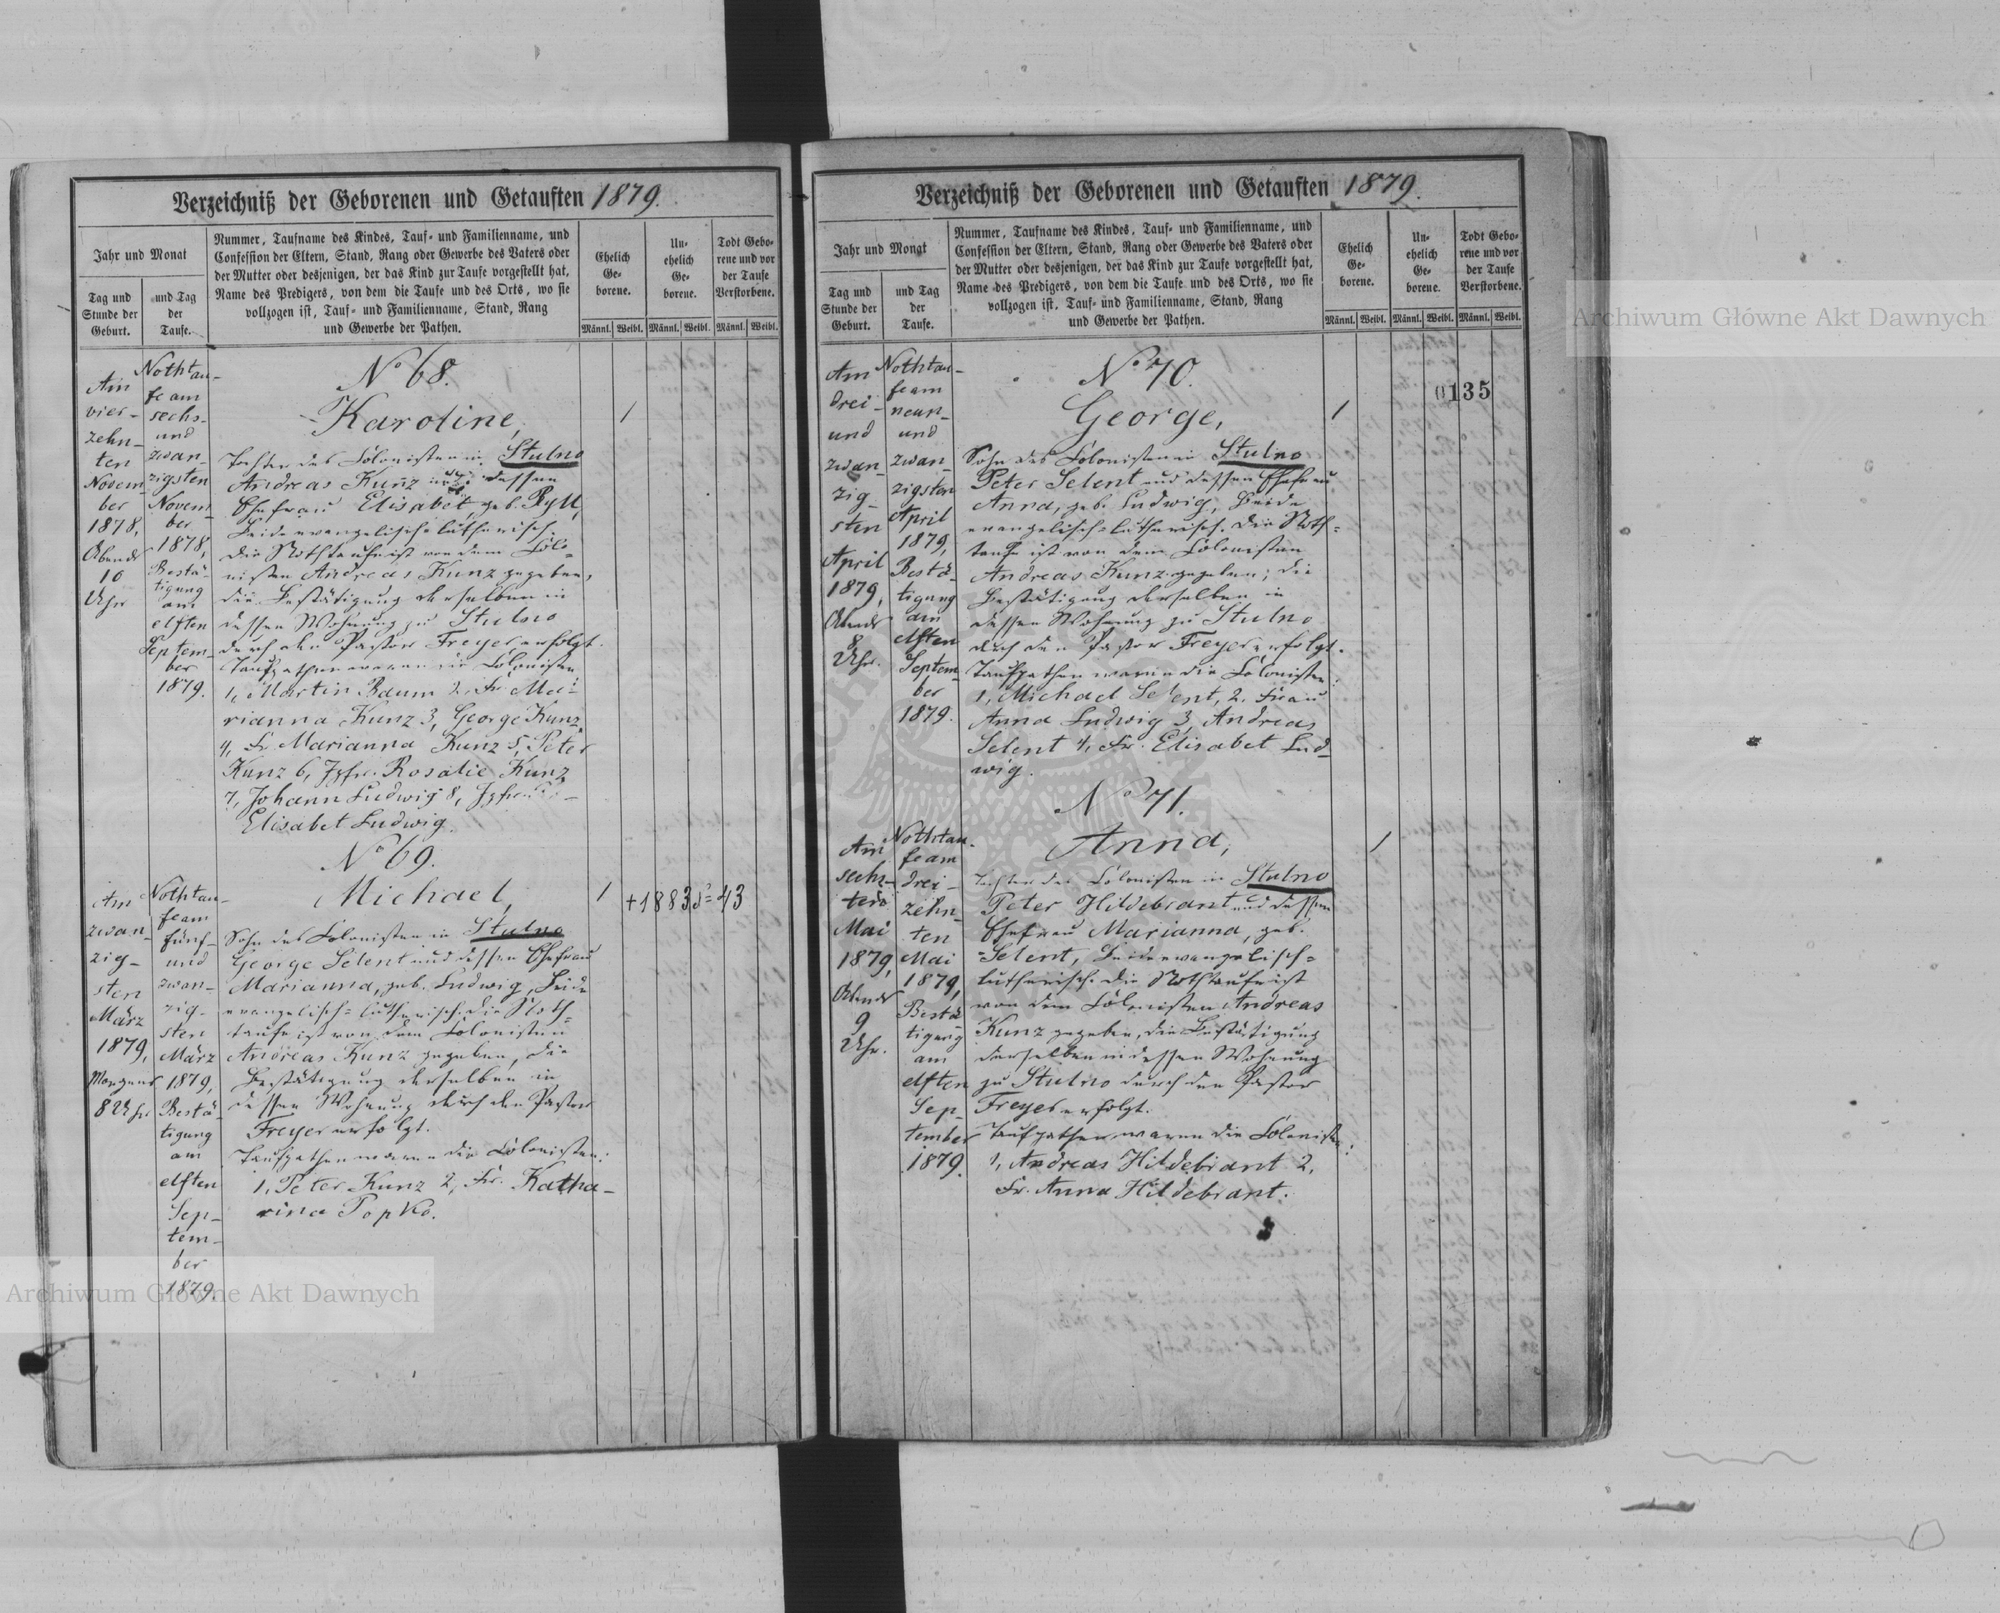 Verzeichniß der Geborenen und Getauften 1879.
Jahr und Monat
Tag und
Stunde der
Geburt.
und Tag
der
Taufe.
Nummer, Taufname des Kindes, Tauf- und Familienname, und
Confession der Eltern, Stand, Rang oder Gewerbe des Vaters oder
der Mutter oder desjenigen, der das Kind zur Taufe vorgestellt hat,
Name des Predigers, von dem die Taufe und des Orts, wo sie
vollzogen ist, Tauf- und Familienname, Stand, Rang
und Gewerbe der Pathen.
Ehelich
Ge-
borene.
Un-
ehelich
Ge-
borene.
Todt Gebo-
rene und vor
der Taufe
Verstorbene.
Männl. Weibl. Männl. Weibl. Männl. Weibl.
Am
vier-
zehn-
ten
Novem-
ber
1878,
Abends
10
Uhr
Nothtau-
fe am
sechs-
und
zwan-
zigsten
Novem-
ber
1878,
Bestä-
tigung
am
elften
Septem-
ber
1879.
No 68.
Karoline,
1
Tochter des Colonisten in Stulno
Andreas Kunz und dessen
Ehefrau Elisabet, geb. Ryll,
Beide evangelisch-lutherisch.
Die Nothtaufe ist von dem Colo-
nisten Andreas Kunz gegeben,
die Bestätigung derselben in
dessen Wohnung zu Stulno
durch den Pastor Freyer erfolgt.
Taufpathen waren die Colonisten
1, Martin Baum 2, Fr. Ma-
rianna Kunz 3, George Kunz
4, Fr. Marianna Kunz 5, Peter
Kunz 6, Jgfr. Rosalie Kunz
7, Johann Ludwig 8, Jgfr.
Elisabet Ludwig.
Am
zwan-
zig-
sten
März
1879,
Morgens
8 Uhr
Nothtau-
fe am
fünf-
und
zwan-
zig-
sten
März
1879,
Bestä-
tigung
am
elften
Sep-
tem-
ber
1879.
No 69.
Michael,
1
+1883 43
Sohn des Colonisten in Stulno
George Selent und dessen Ehefrau
Marianna, geb. Ludwig, Beide
evangelisch-lutherisch. Die Noth-
taufe ist von dem Colonisten
Andreas Kunz gegeben, die
Bestätigung derselben in
dessen Wohnung durch den Pastor
Freyer erfolgt.
Taufpathen waren die Colonisten:
1, Peter Kunz 2, Fr. Katha-
rina Popko.
Verzeichniß der Geborenen und Getauften 1879.
Jahr und Monat
Tag und
Stunde der
Geburt.
und Tag
der
Taufe.
Nummer, Taufname des Kindes, Tauf- und Familienname, und
Confession der Eltern, Stand, Rang oder Gewerbe des Vaters oder
der Mutter oder desjenigen, der das Kind zur Taufe vorgestellt hat,
Name des Predigers, von dem die Taufe und des Orts, wo sie
vollzogen ist, Tauf- und Familienname, Stand, Rang
und Gewerbe der Pathen.
Ehelich
Ge-
borene.
Un-
ehelich
Ge-
borene.
Todt Gebo-
rene und vor
der Taufe
Verstorbene.
Männl. Weibl. Männl. Weibl. Männl. Weibl.
0135
Am
drei-
und
zwan-
zig-
sten
April
1879,
Abends
8
Uhr.
Nothtau-
fe am
neun-
und
zwan-
zigsten
April
1879,
Bestä-
tigung
am
elften
Septem-
ber
1879.
No 70.
George,
1
Sohn des Colonisten in Stulno
Peter Selent und dessen Ehefrau
Anna, geb. Ludwig, Beide
evangelisch-lutherisch. Die Noth-
taufe ist von dem Colonisten
Andreas Kunz gegeben; die
Bestätigung derselben in
dessen Wohnung zu Stulno
durch den Pastor Freyer erfolgt.
Taufpathen waren die Colonisten:
1, Michael Selent, 2. Frau
Anna Ludwig 3, Andreas
Selent 4, Fr. Elisabet Lud-
wig.
Am
sechs-
ten
Mai
1879,
Abends
9
Uhr.
Nothtau-
fe am
drei-
zehn-
ten
Mai
1879,
Bestä-
tigung
am
elften
Sep-
tember
1879.
No 71.
Anna,
1
Tochter des Colonisten in Stulno
Peter Hildebrant und dessen
Ehefrau Marianna, geb.
Selent, Beide evangelisch-
lutherisch. Die Nothtaufe ist
von dem Colonisten Andreas
Kunz gegeben, die Bestätigung
derselben in dessen Wohnung
zu Stulno durch den Pastor
Freyer erfolgt.
Taufpathen waren die Colonisten:
1, Andreas Hildebrant 2,
Fr. Anna Hildebrant.
Archiwum Główne Akt Dawnych
Archiwum Główne Akt Dawnych